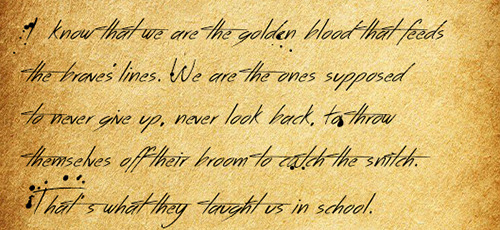 I know that we are the golden blood that feeds
the braves' lines. We are the ones supposed
to never give up, never look back, to throw
themselves off their broom to catch the snitch.
That's what they taught us in school.